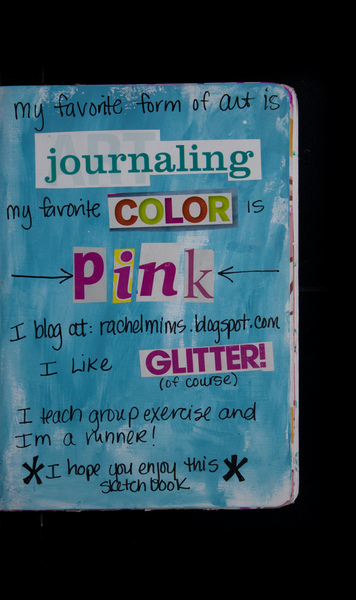 my favorite form of art is
journaling
my favorite COLOR is
pink
I blog at: rachelmims.blogspot.com
I like GLITTER!
(of course)
I teach group exercise and
I'm a runner!
I hope you enjoy this
sketchbook